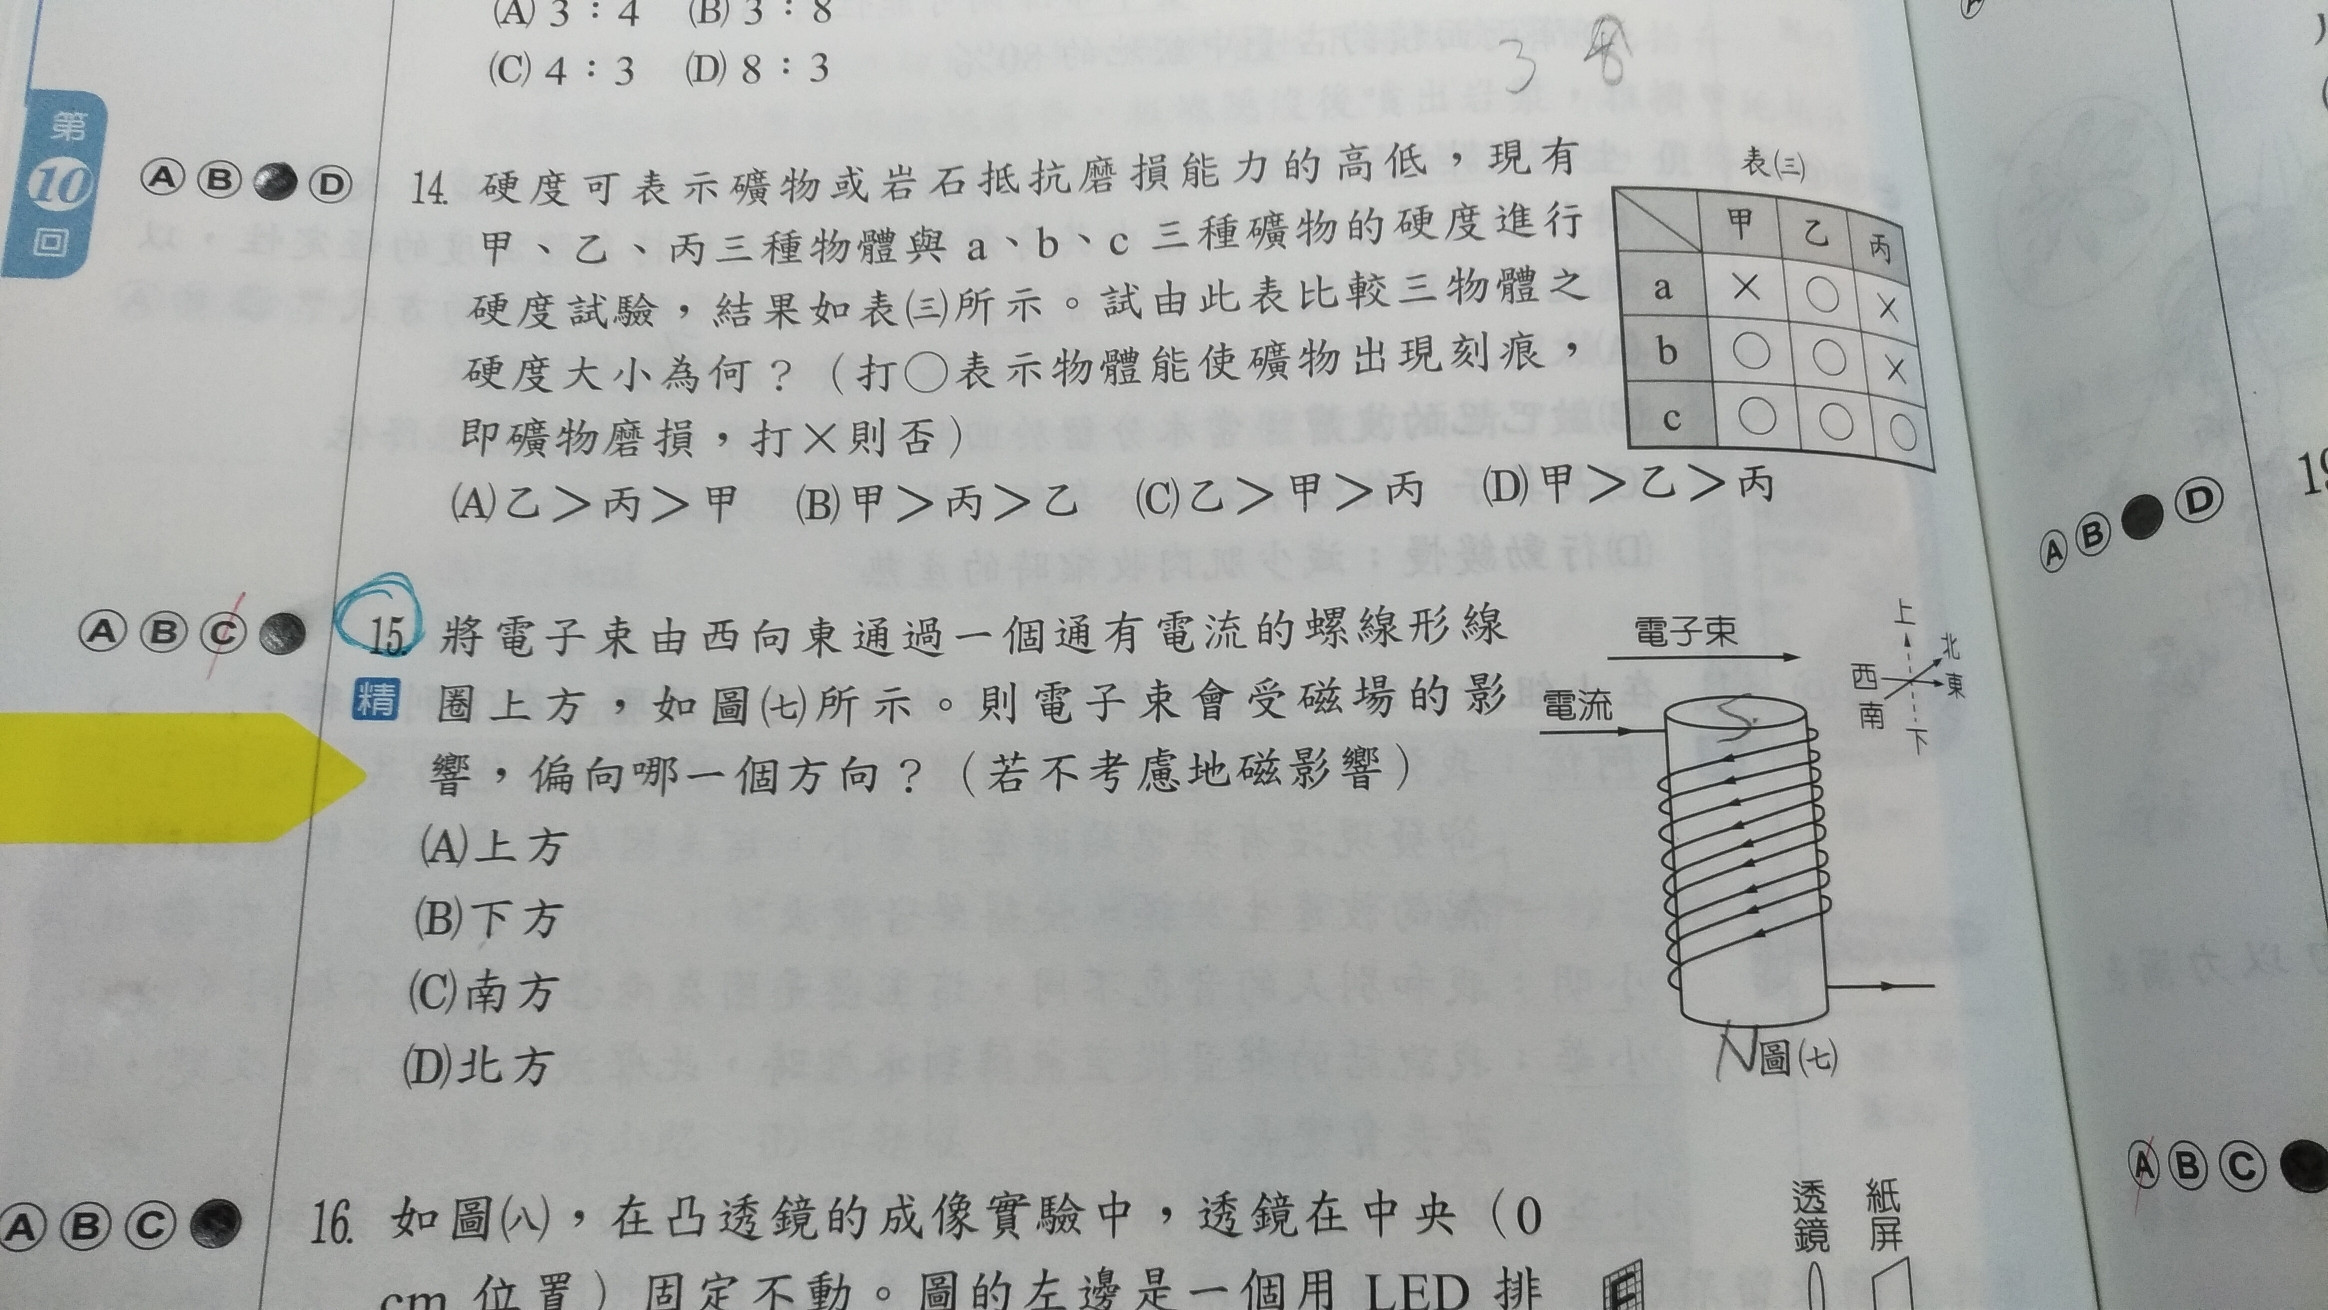 (A) 3：4 (B) 3：8
(C) 4：3 (D) 8：3
3 8
第
10
回
A B D 14. 硬度可表示礦物或岩石抵抗磨損能力的高低，現有
甲、乙、丙三種物體與 a、b、c 三種礦物的硬度進行
硬度試驗，結果如表㈢所示。試由此表比較三物體之
硬度大小為何？（打○表示物體能使礦物出現刻痕，
即礦物磨損，打×則否）
(A)乙＞丙＞甲 (B)甲＞丙＞乙 (C)乙＞甲＞丙 (D)甲＞乙＞丙
表㈢
甲 乙 丙
a × ○ ×
b ○ ○ ×
c ○ ○ ○
A B C 15. 將電子束由西向東通過一個通有電流的螺線形線
精 圈上方，如圖㈦所示。則電子束會受磁場的影
響，偏向哪一個方向？（若不考慮地磁影響）
(A)上方
(B)下方
(C)南方
(D)北方
電子束
電流
上
北
西 東
南
下
S
N
圖㈦
A B C 16. 如圖㈧，在凸透鏡的成像實驗中，透鏡在中央（0
cm 位置）固定不動。圖的左邊是一個用 LED 排
透鏡
紙屏
F
A B D
A B C